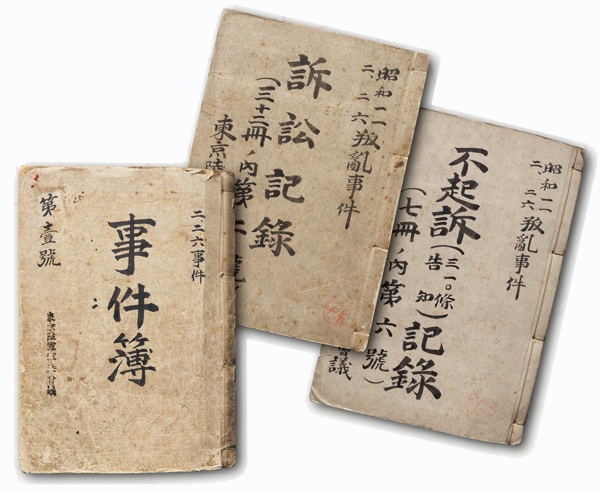 二、二六事件
事件簿
第壹號
昭和一一
二、二六叛亂事件
訴訟記錄
(三十二冊ノ内第二號
東京陸
昭和一一
二、二六叛亂事件
不起訴(三一〇條告知)記錄
(七冊ノ内第六號)
會議